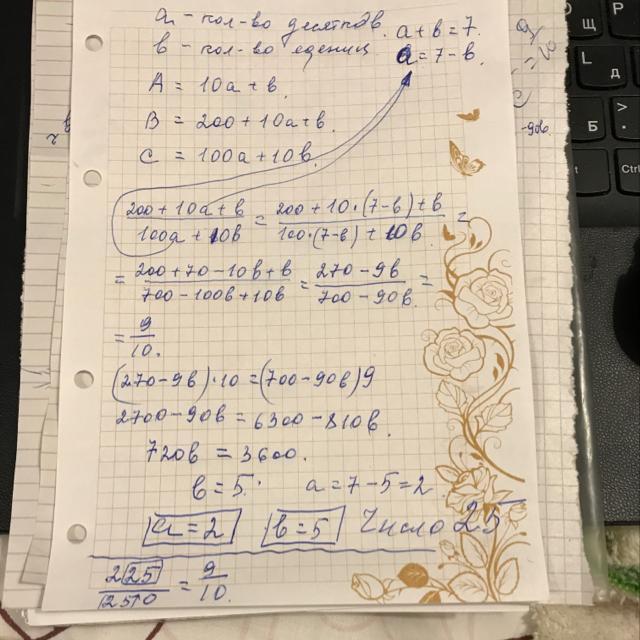 a - кол-во десятков. a + b = 7.
b - кол-во едениц a = 7 - b.
A = 10a + b.
B = 200 + 10a + b.
C = 100a + 10b.
(200 + 10a + b)/(100a + 10b) = (200 + 10·(7-b) + b)/(100·(7-b) + 10b) =
= (200 + 70 - 10b + b)/(700 - 100b + 10b) = (270 - 9b)/(700 - 90b) =
= 9/10.
(270 - 9b)·10 = (700 - 90b)9
2700 - 90b = 6300 - 810b.
720b = 3600.
b = 5. a = 7 - 5 = 2.
a = 2 b = 5 Число 25
225/250 = 9/10.
-90b.
Щ
P
L
Д
Б
>
Ctrl